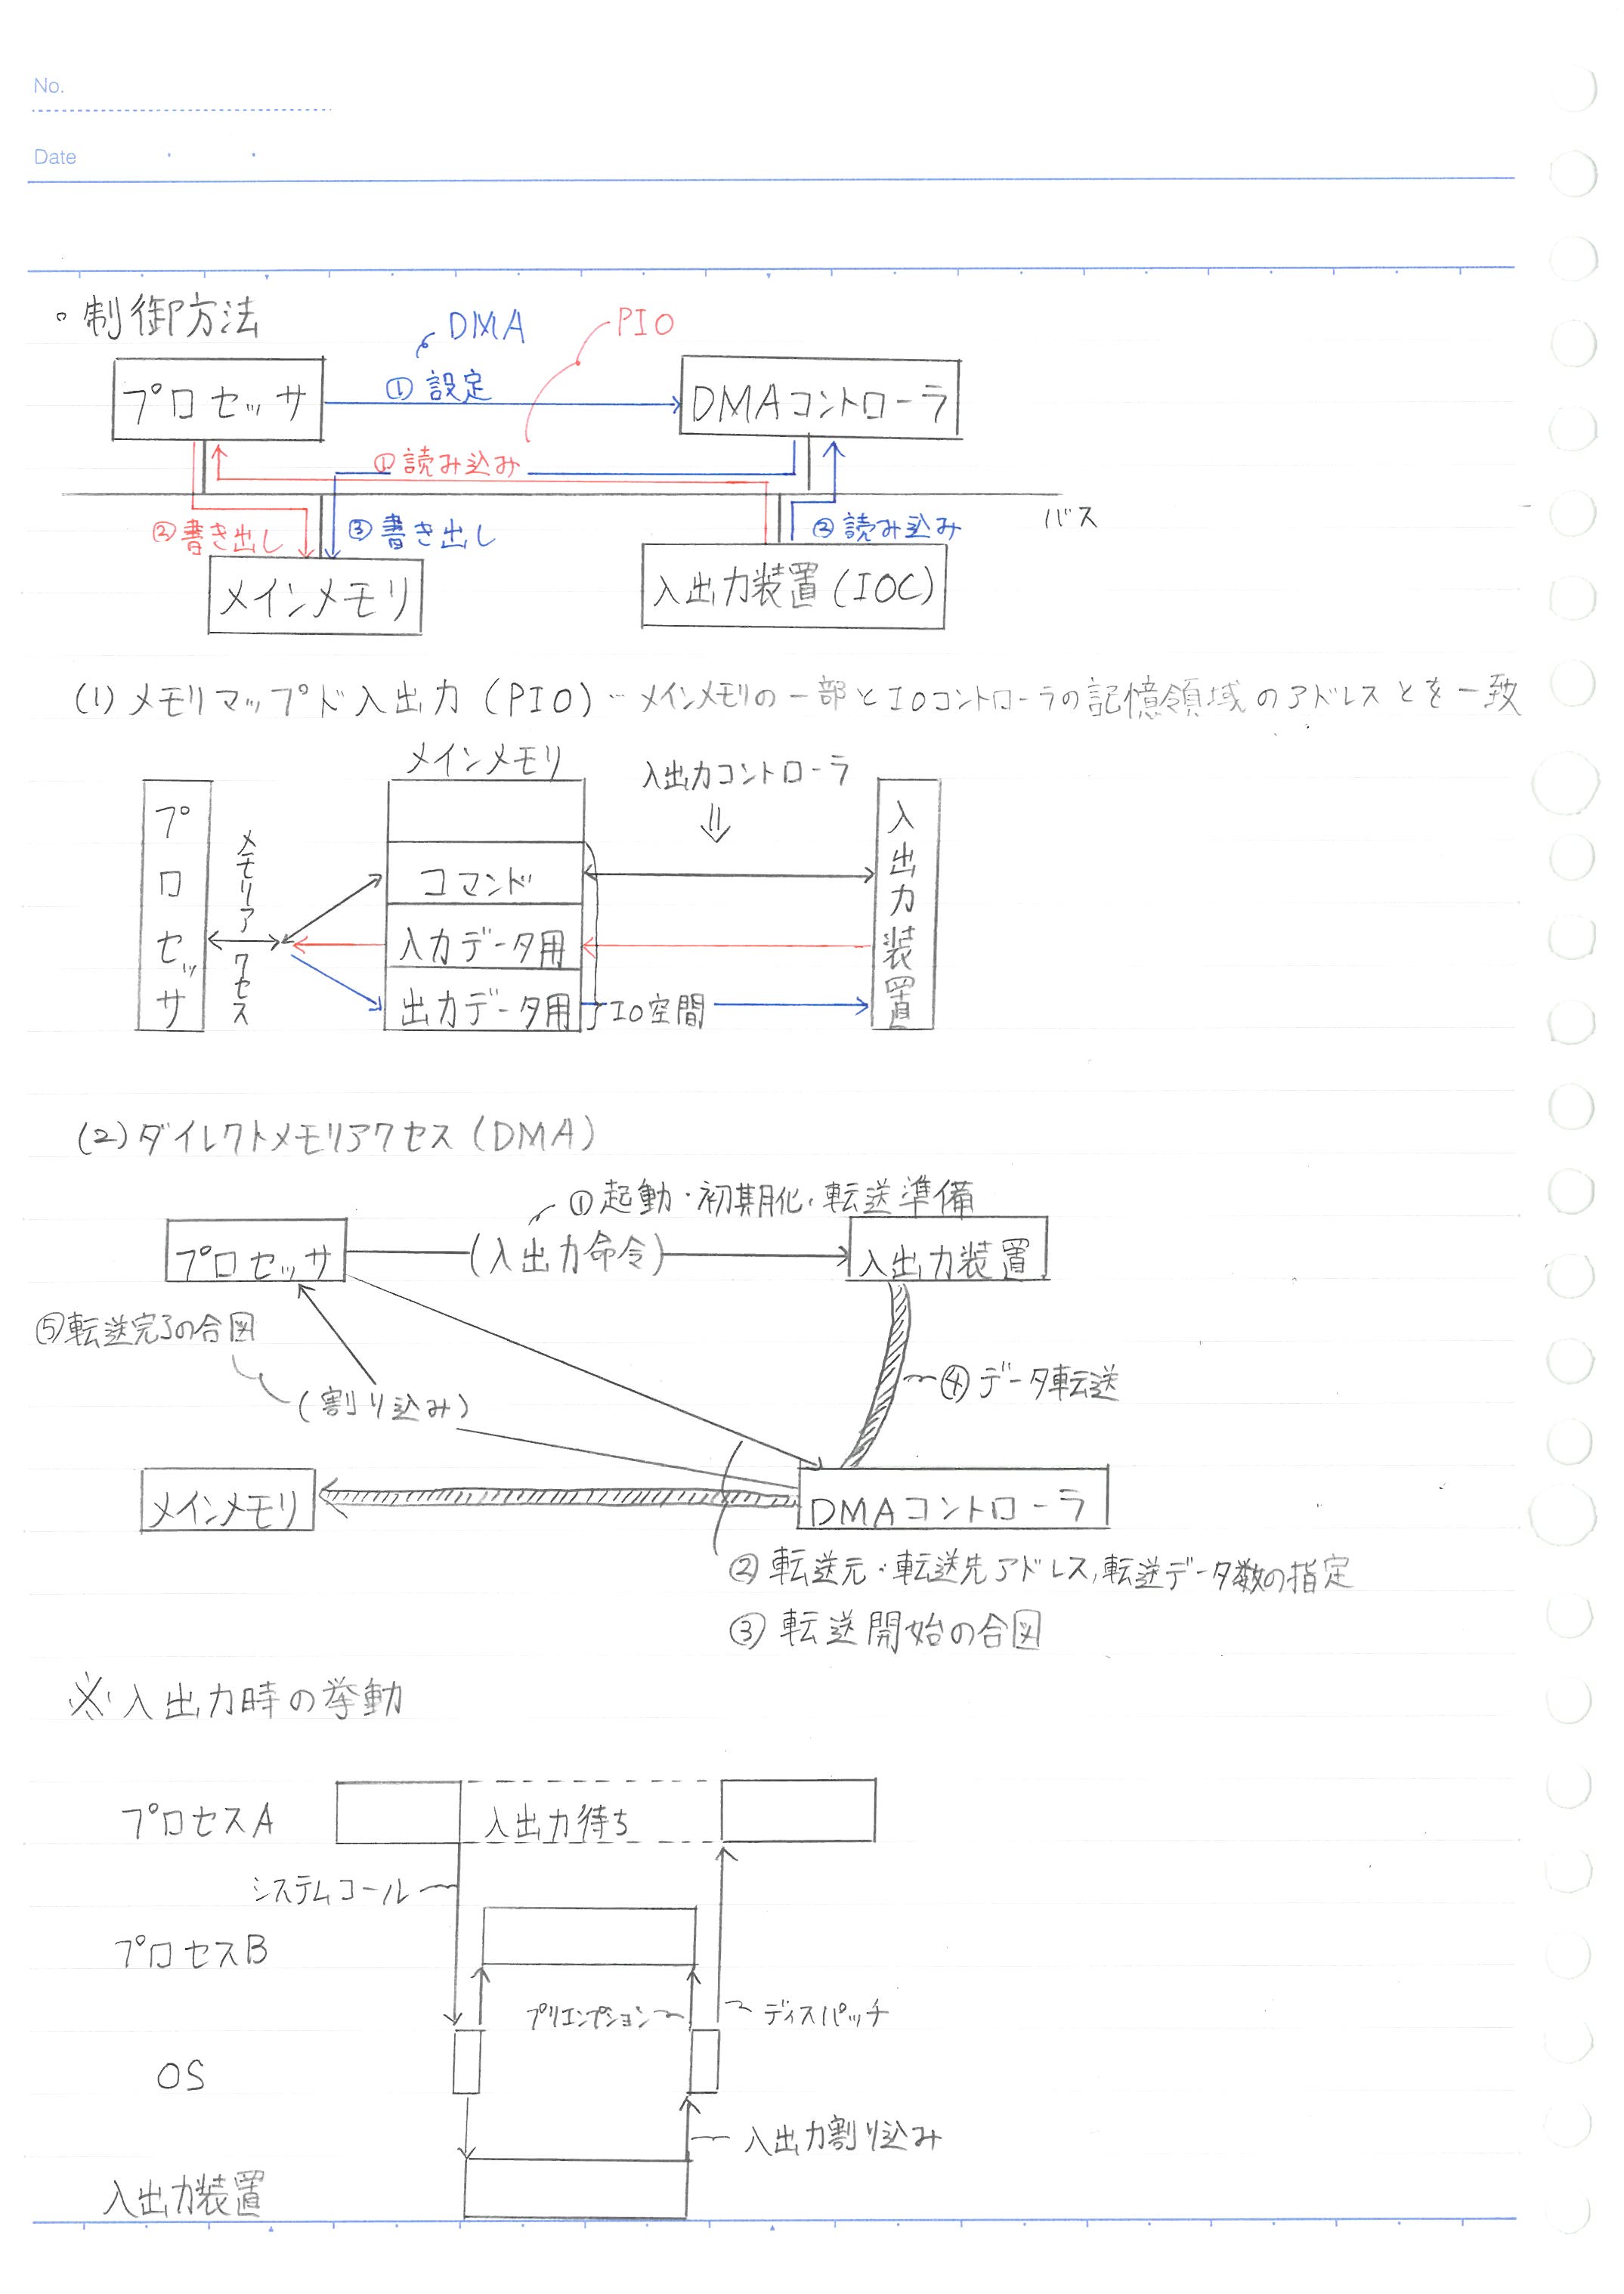 No.
Date
。制御方法
DMA
PIO
プロセッサ
①設定
DMAコントローラ
①読み込み
バス
②書き出し
③書き出し
②読み込み
メインメモリ
入出力装置(IOC)
(1)メモリマップド入出力(PIO)…メインメモリの一部とIOコントローラの記憶領域のアドレスとを一致
メインメモリ
入出力コントローラ
プロセッサ
メモリアクセス
コマンド
入力データ用
出力データ用
IO空間
入出力装置
(2)ダイレクトメモリアクセス(DMA)
①起動・初期化・転送準備
プロセッサ
(入出力命令)
入出力装置
⑤転送完了の合図
(割り込み)
④データ転送
メインメモリ
DMAコントローラ
②転送元・転送先アドレス,転送データ数の指定
③転送開始の合図
※入出力時の挙動
プロセスA
入出力待ち
システムコール
プロセスB
プリエンプション
ディスパッチ
OS
入出力割り込み
入出力装置